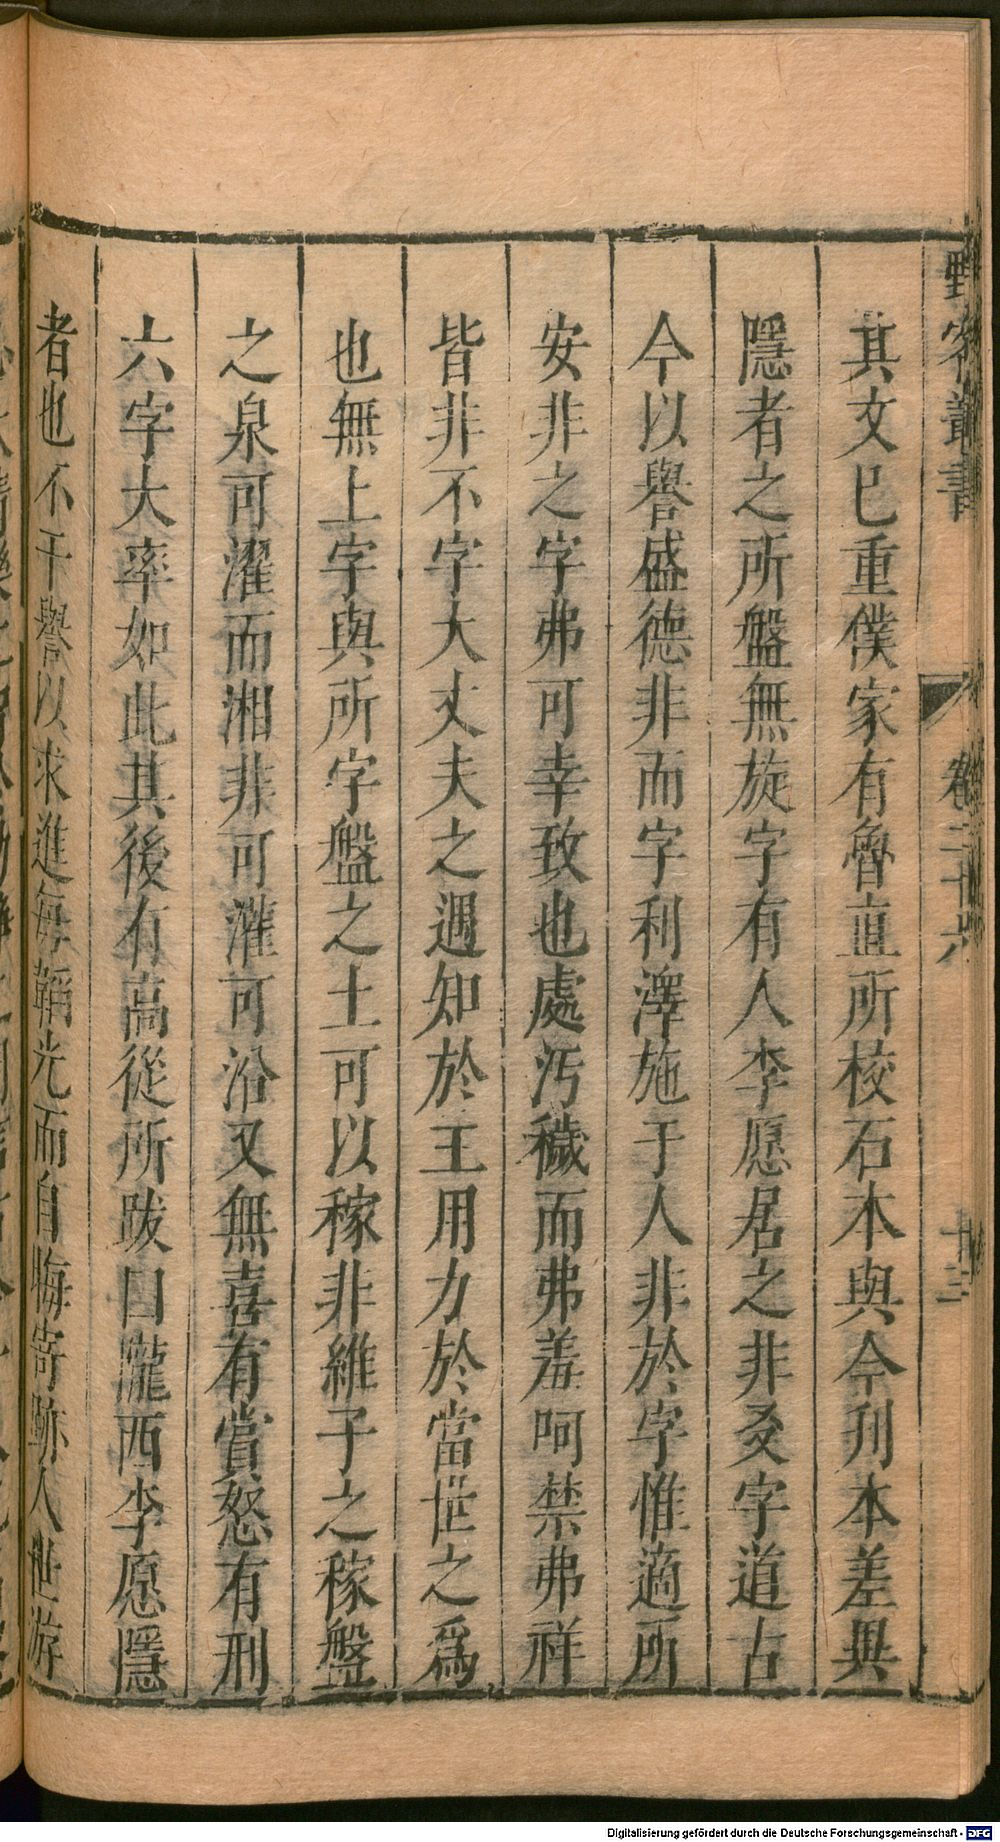 野客叢書 卷二十六 十三
其文已重僕家有魯直所校石本與今刋本差異
隱者之所盤無旋字有人李愿居之非友字道古
今以譽盛德非而字利澤施于人非於字惟適所
安非之字弗可幸致也處汚穢而弗羞呵禁弗祥
皆非不字大丈夫之遇知於王用力於當世之爲
也無上字與所字盤之土可以稼非維子之稼盤
之泉可濯而湘非可灌可沿又無喜有賞怒有刑
六字大率如此其後有高從所跋曰隴西李愿隱
者也不干譽以求進每韜光而自晦寄跡人世游
Digitalisierung gefördert durch die Deutsche Forschungsgemeinschaft - DFG